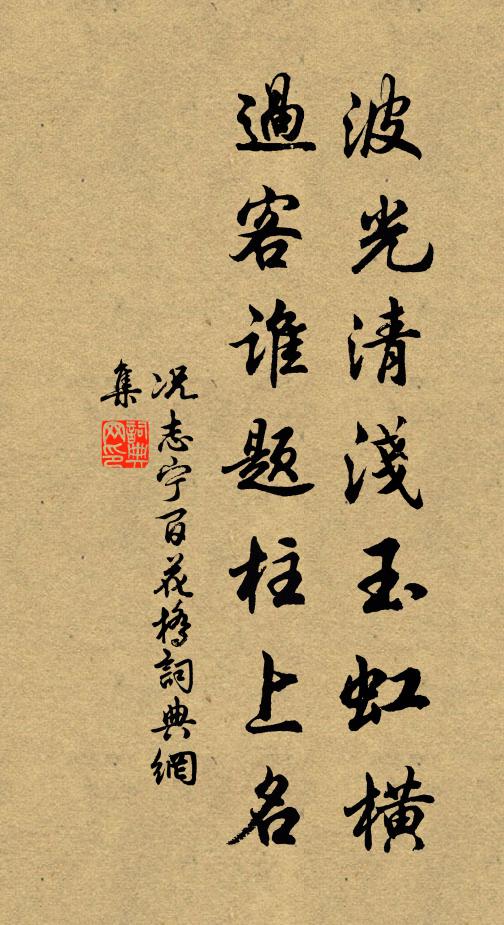 波光清淺玉虹橫
過客誰題柱上名
况志宁百花橋詞典網
集
詞典网印